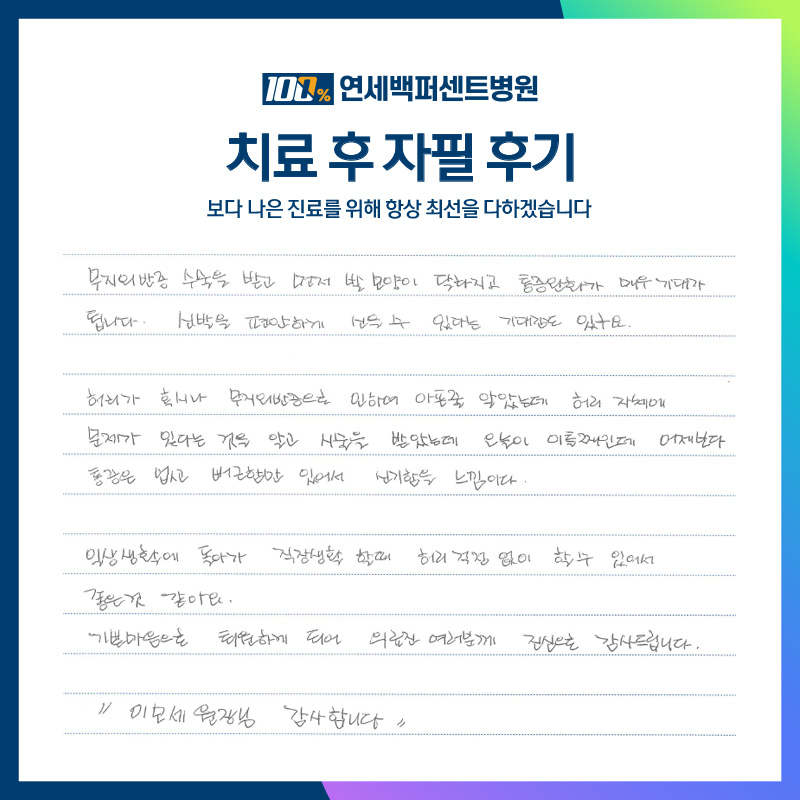 100% 연세백퍼센트병원
치료 후 자필 후기
보다 나은 진료를 위해 항상 최선을 다하겠습니다
무지외반증 수술을 받고 먼저 발 모양이 닥하지고 통증완화가 매우 기대가
됩니다. 신발을 편안하게 신을 수 있다는 기대감도 있구요.
허리가 혹시나 무지외반증으로 인하여 아픈줄 알았는데 허리 자체에
문제가 있다는 것을 알고 시술을 받았는데 오늘이 이틀째인데 어제보다
통증은 없고 뻐근함만 있어서 신기함을 느낌이다.
일상생활에 돌아가 직장생활 할때 허리 걱정 없이 할 수 있어서
좋은것 같아요.
기쁜마음으로 퇴원하게 되어 의료진 여러분께 진심으로 감사드립니다.
" 이모세 원장님 감사합니다 "